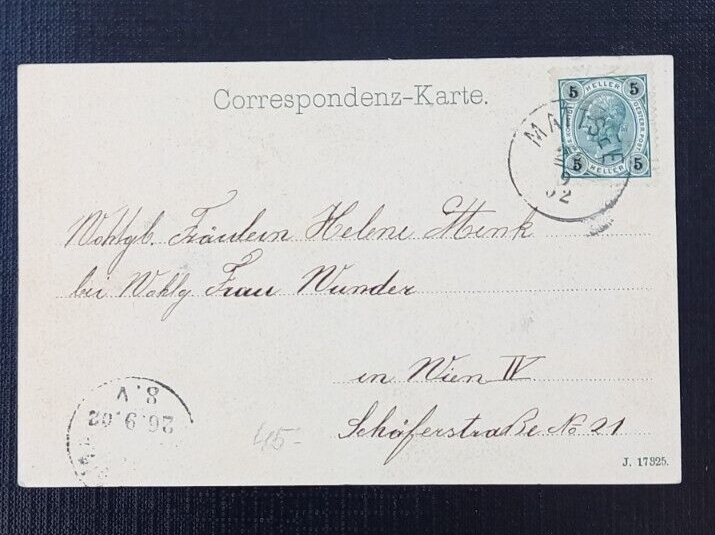 Correspondenz-Karte.
5 HELLER 5
5 HELLER 5
9
02
Wohlgb. Fräulein Helene Mink
bei Wohlg Frau Wunder
in Wien IV
Schäferstraße No 21
8.V
26.9.02
45-
J. 17925.